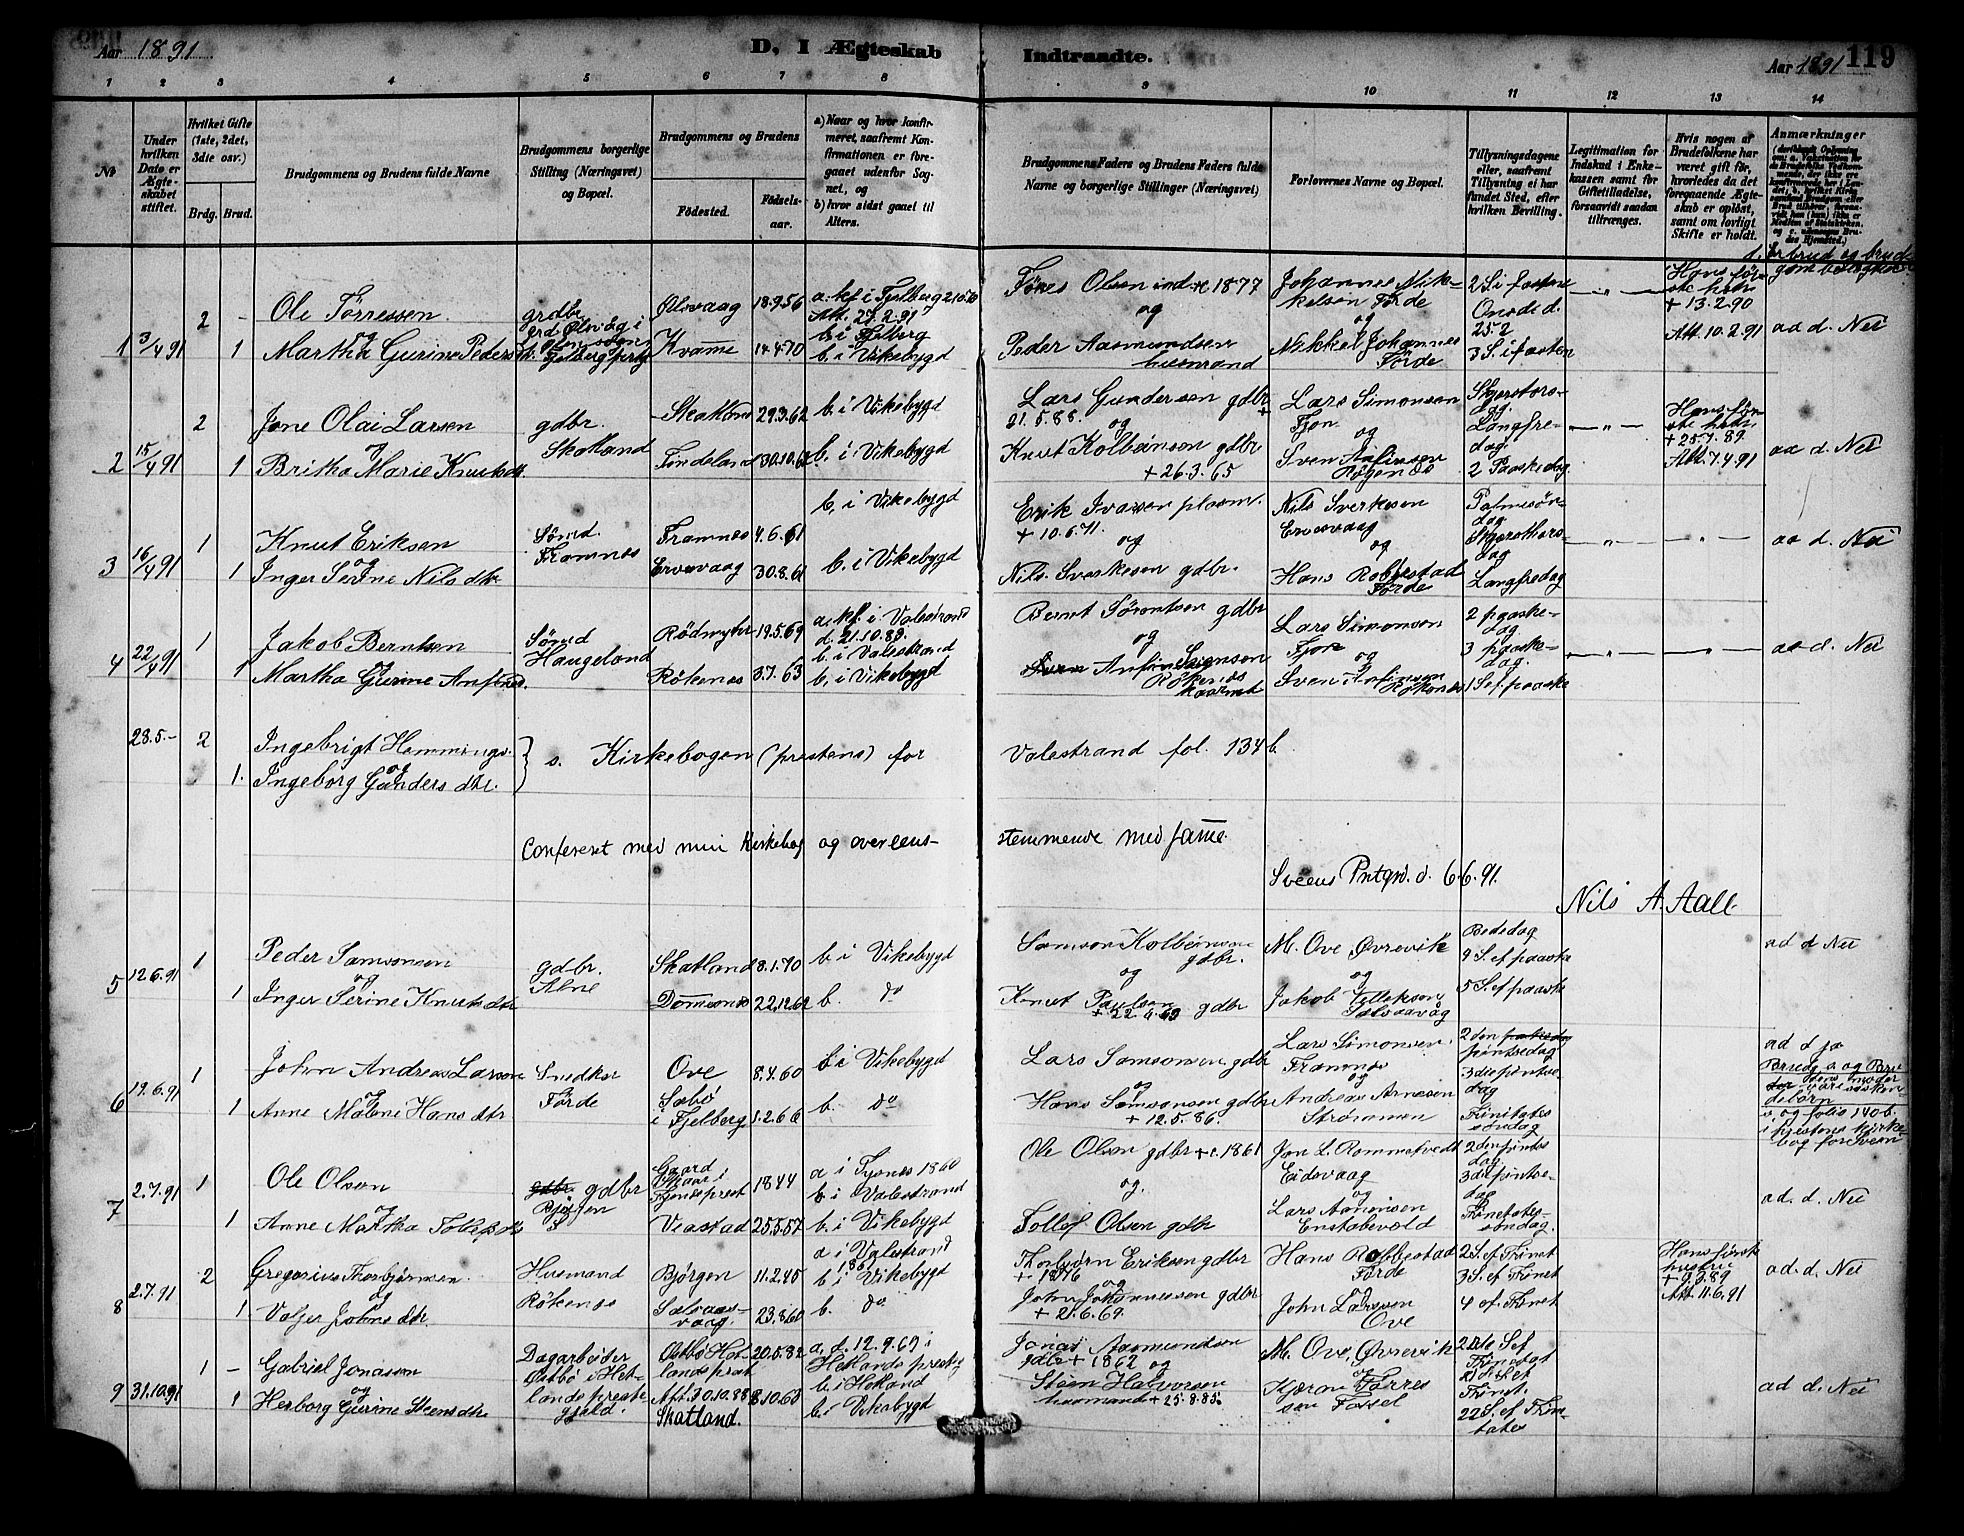 Aar 1891.
D, I Ægteskab Indtraadte.
Aar 1891 119
1 2 3 4 5 6 7 8 9 10 11 12 13 14
No
Under hvilken Dato er Ægteskabet stiftet.
Hvilket Gifte (1ste, 2det, 3die osv.)
Brdg. Brud.
Brudgommens og Brudens fulde Navne
Brudgommens borgerlige Stilling (Næringsvei) og Bopæl.
Brudgommens og Brudens
Fødested. Fødselsaar.
a) Naar og hvor konfirmeret, saafremt Konfirmationen er foregaaet udenfor Sognet, og
b) hvor sidst gaaet til Alters.
Brudgommens Faders og Brudens Faders fulde Navne og borgerlige Stillinger (Næringsvei)
Forlovernes Navne og Bopæl.
Tillysningsdagene eller, saafremt Tillysning ei har fundet Sted, efter hvilken Bevilling.
Legitimation for Indskud i Enkekassen samt for Giftetilladelse, forsaavidt saadan tiltrænges.
Hvis nogen af Brudefolkene har været gift før, hvorledes da det foregaaende Ægteskab er opløst, samt om lovligt Skifte er holdt.
Anmærkninger
1 3/4 91 2 - Ole Tørressen grdbr. Ølsvaag i Fjelberg prstg Ølsvaag 18 9.56 a. kf. i Fjelberg Att. 27.2.91 b. i Fjelberg
og
1 Martha Gurine Peders dt. Kvame 14 4 70 b. i Vikebygd
Tøres Olsen ind. + 1877
og
Peder Aasmundsen husmand
Johannes Mikkelsen Førde
og
Mikkel Johannes Førde
2 S i fasten Onsd d. 25 2 3 S. i fasten
— " —
Hans første hustru + 13.2.90 Att. 10.2.91
aa d. Nei
2 15/4 91 2 Jone Olai Larsen gdbr. Skatland Skatland 29.3.62 b. i Vikebygd
og
1 Britha Marie Knutsdt. Tindeland 30.10.62 b. i Vikebygd
Lars Gundersen gdbr + 21.5.88.
og
Knut Kolbeinsen gdbr + 26.3.65
Lars Simonsen Fjon
og
Sven Anfinsen Røkenes
Skjærtorsdag. Langfredag. 2 Paaskedag
— " —
Hans første hustru + 25.7.89. Att. 7.4.91
aa d. Nei
3 16/4 91 1 Knut Eriksen Sømd. Framnes Framnes 4.6.61 b. i Vikebygd
og
1 Inger Serine Nils dtr Ervesvaag 30.8.61 b. i Vikebygd
Erik Ivarsen plasm. + 10.6.71.
og
Nils Sverkesen gdbr.
Nils Sverkesen Ervesvaag
og
Hans Robbestad Førde
Palmesøndag Skjærethorsdag Langfredag
— " — — " —
aa d. Nei
4 22/4 91 1 Jakob Berntsen Sømd Haugeland Rødmyhr 19.5.69 a. kf. i Valestrand d. 21.10.83. b. i Valestrand
og
1 Martha Gurine Anfinsd. Røkenes 3.7.63 b. i Vikebygd
Bernt Sørentsen gdbr
og
Anfin Svensen Røkenes kaarmd
Lars Simonsen Fjon
og
Sven Anfinsen Røkenes
2 paaskedag 3 paaskedag. 1 S. ef. paaske
— " — — " —
aa d. Nei
28.5.— 2 Ingebrigt Hemmings.
og
1. Ingeborg Gunders dtr. } s. Kirkebogen (prestens) for Valestrand fol. 134 b.
Confereret med min Kirkebog og overeensstemmende med samme.
Sveens Prstgrd. d. 6.6.91.
Nils A. Aall.
5 12.6.91 1 Peder Samsonsen gdbr. Alne Skatland 8.1.70 b. i Vikebygd
og
1 Inger Serine Knuts dtr Dommesnes 22.12.62 b. do
Samson Kolbeinsen gdbr.
og
Knut Paulsen gdbr
M. Ove, Øvrevik
og
Jakob Tolleksen Sølvaavåg
Bededag 4 S. ef paaske 5 S. ef paaske
ad d Nei
6 19.6.91 1 John Andreas Larsen Snedker Førde Ove 8.4.60 b i Vikebygd
og
1 Anne Malene Hans dtr Søbø i Fjelberg 1.2.66 b. do
Lars Samsonsen gdbr
og
Hans Samsonsen gdbr + 12.5.86.
Lars Simonsen. Framnes
og
Andreas Arnesen Strømmen
2den pintsedag 3die pintsedag Trinitatis søndag
ad d ja
Brudg a og Brudens moder vare søskendebørn
og folio 140 b. i prestens kirkebog for Sveen
7 2.7.91 1 Ole Olsen gdbr Bjørgen Gaard i Tysnes prest 1844 a i Tysnes 1860 b. i Valestrand
og
1 Anne Martha Tollefs dtr Viastad 25.5.57 b. i Vikebygd
Ole Olsen gdbr + c. 1861
og.
Tollef Olsen gdbr
Jon L. Rommetvedt Eidsvaag
og
Lars Aanensen Enstabøvold
2den pintsdag 3die pintsedag Trinetatessøndag.
ad. d. Nei
8 2.7.91 2 Gregorius Thorbjørnsen Husmand Røkenes Bjørgen 11.2.45 a i Valestrand 1861 b i Vikebygd
og
1 Valjer Johns dtr. Sølvaasvaag. 23.8.60 b. do
Thorbjørn Eriksen gdbr + 1876
og
John Johannessen gdbr + 21.6.69.
Hans Robbestad Førde
og
John Larssen Ove
2 S. ef Trinet 3 S. ef Trinet 4 ef. Trinet
Hans første hustru + 9.3.89 Att. 11.6.91
ad. d. Nei
9 31.10.91 1 - Gabriel Jonasen Dagarbeider Østbø i Hetlands prestegjeld. Østbø Hetlands prest a. d. 12.9.67 i Hetlands prestg b. i Hetland
og
1 Herborg Gurine Steens dtr Skatland. 8.10.63 b. i Vikebygd
Jonas Aasmundsen gdbr + 1862
og
Steen Halvorsen husmand + 25.8.85.
M. Ove, Øvrevik
og
Kjeran Tørressen Førsel
Trinetat 21de S. ef Trinet. 22 S. ef Trinitates
ad d. Nei